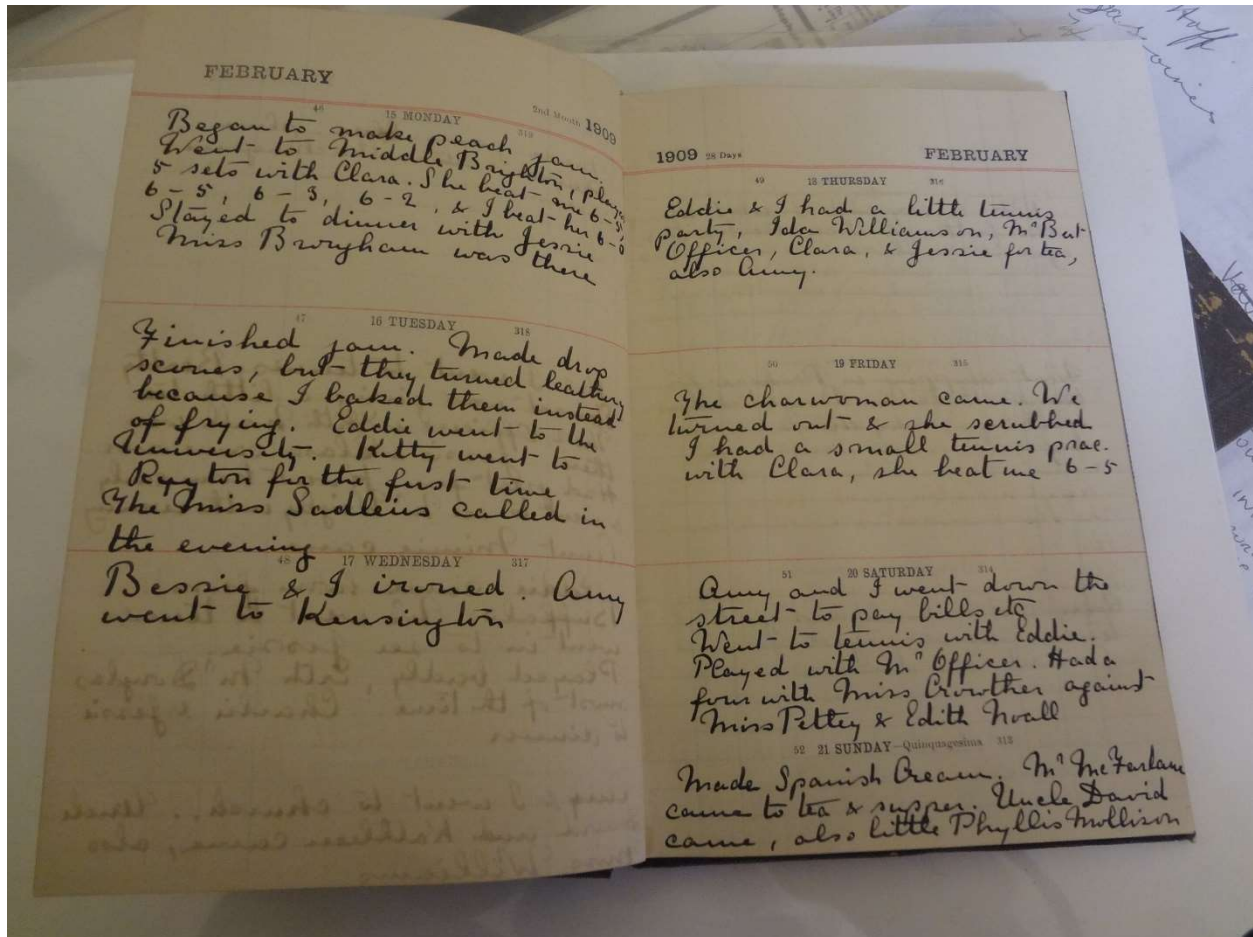 FEBRUARY
46 15 MONDAY 319
2nd Month 1909
Began to make peach jam.
Went to Middle Brighton, played
5 sets with Clara. She beat me 6-5,
6-5, 6-3, 6-2, & I beat her 6-0
Stayed to dinner with Jessie
Miss Brougham was there
47 16 TUESDAY 318
Finished jam. Made drop
scones, but they turned leathery
because I baked them instead
of frying. Eddie went to the
University. Kitty went to
Ruyton for the first time
The Miss Sadleirs called in
the evening
48 17 WEDNESDAY 317
Bessie & I ironed. Amy
went to Kensington
1909 28 Days FEBRUARY
49 18 THURSDAY 316
Eddie & I had a little tennis
party, Ida Williamson, Mr Bert
Officer, Clara, & Jessie for tea,
also Amy.
50 19 FRIDAY 315
The charwoman came. We
turned out & she scrubbed
I had a small tennis prac.
with Clara, she beat me 6-5
51 20 SATURDAY 314
Amy and I went down the
street to pay bills etc
Went to tennis with Eddie.
Played with Mr Officer. Had a
four with Miss Crowther against
Miss Pettey & Edith Noall
52 21 SUNDAY—Quinquagesima 313
Made Spanish Cream. Mr McFarlane
came to tea & supper. Uncle David
came, also little Phyllis Mollison
Hoff
gas